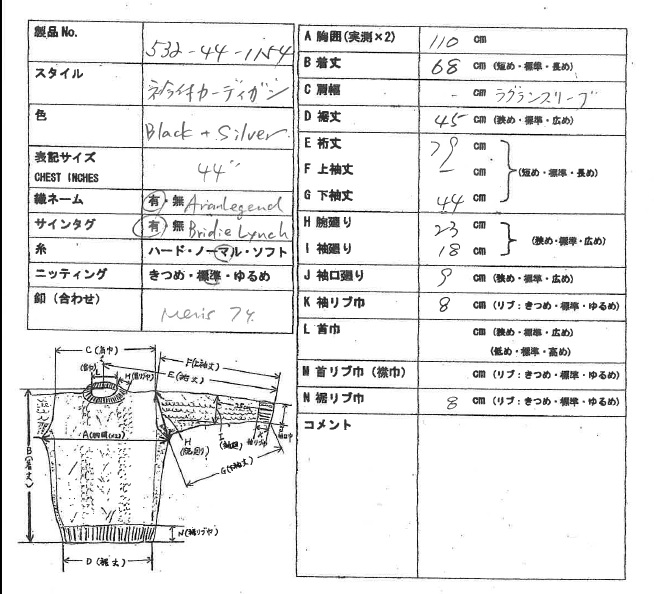 製品No. 532-44-1154
スタイル 衿付カーディガン
色 Black + Silver
表記サイズ
CHEST INCHES 44"
織ネーム 有・無 Aranlegend
サインタグ 有・無 Bridie Lynch
糸 ハード・ノーマル・ソフト
ニッティング きつめ・標準・ゆるめ
釦(合わせ) Mens 7ケ
A 胸囲(実測×2) 110 cm
B 着丈 68 cm (短め・標準・長め)
C 肩幅 - cm ラグランスリーブ
D 裾丈 45 cm (狭め・標準・広め)
E 裄丈 79 cm
F 上袖丈 - cm (短め・標準・長め)
G 下袖丈 44 cm
H 腕廻り 23 cm
I 袖廻り 18 cm (狭め・標準・広め)
J 袖口廻り 9 cm (狭め・標準・広め)
K 袖リブ巾 8 cm (リブ:きつめ・標準・ゆるめ)
L 首巾 cm (狭め・標準・広め)
(低め・標準・高め)
M 首リブ巾(襟巾) cm (リブ:きつめ・標準・ゆるめ)
N 裾リブ巾 8 cm (リブ:きつめ・標準・ゆるめ)
コメント
C(肩巾)
F(上袖丈)
E(裄丈)
L
(首巾)
A(胸囲(×2))
B(着丈)
H
(腕廻り)
I
(袖廻)
K
袖リブ巾
G(下袖丈)
N(裾リブ巾)
D(裾丈)